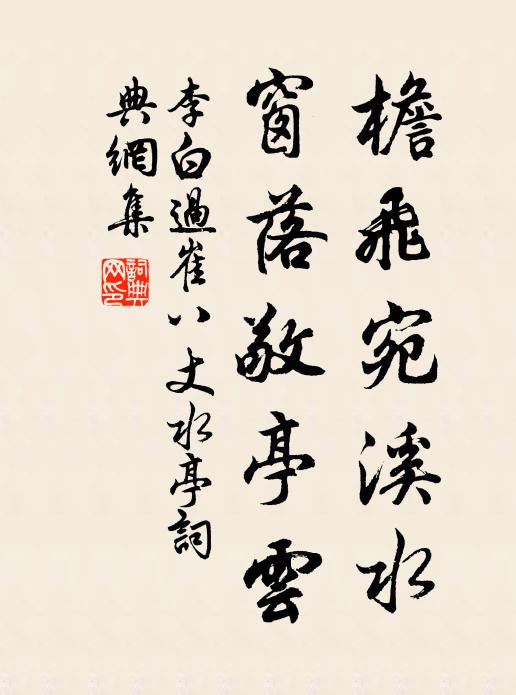 檐飛宛溪水
窗落敬亭雲
李白過崔八丈水亭詞
典網集
詞典网印